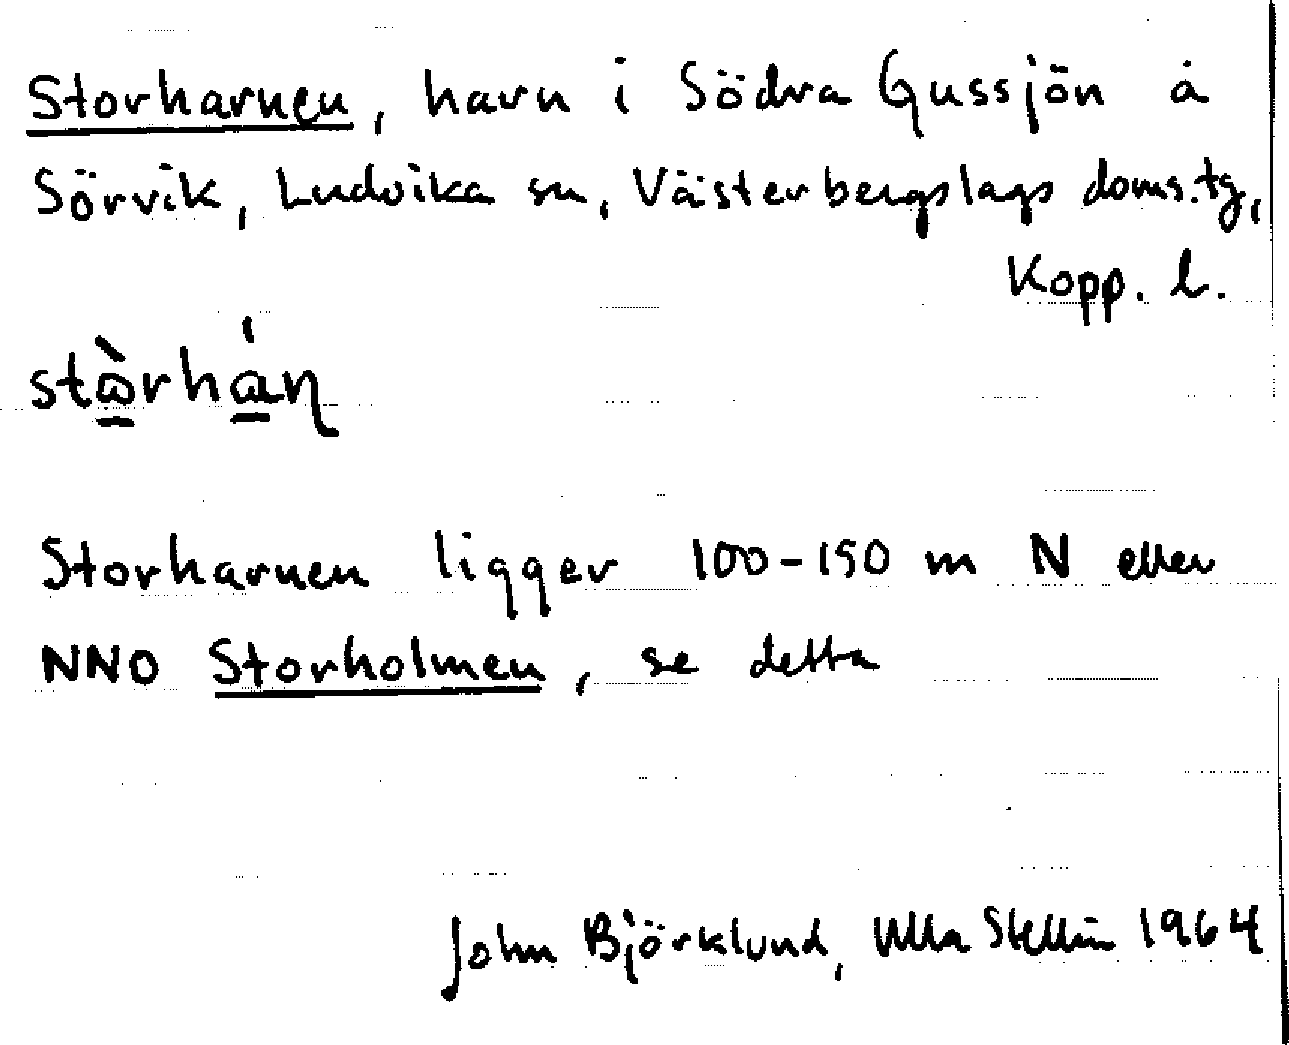 Storharnen, harn i Södra Gussjön å
Sörvik, Ludvika sn, Västerbergslags doms.tg,
Kopp. l.
Storharnen ligger 100-150 m N eller
NNO Storholmen, se detta
John Björklund, Ulla Stellin 1964